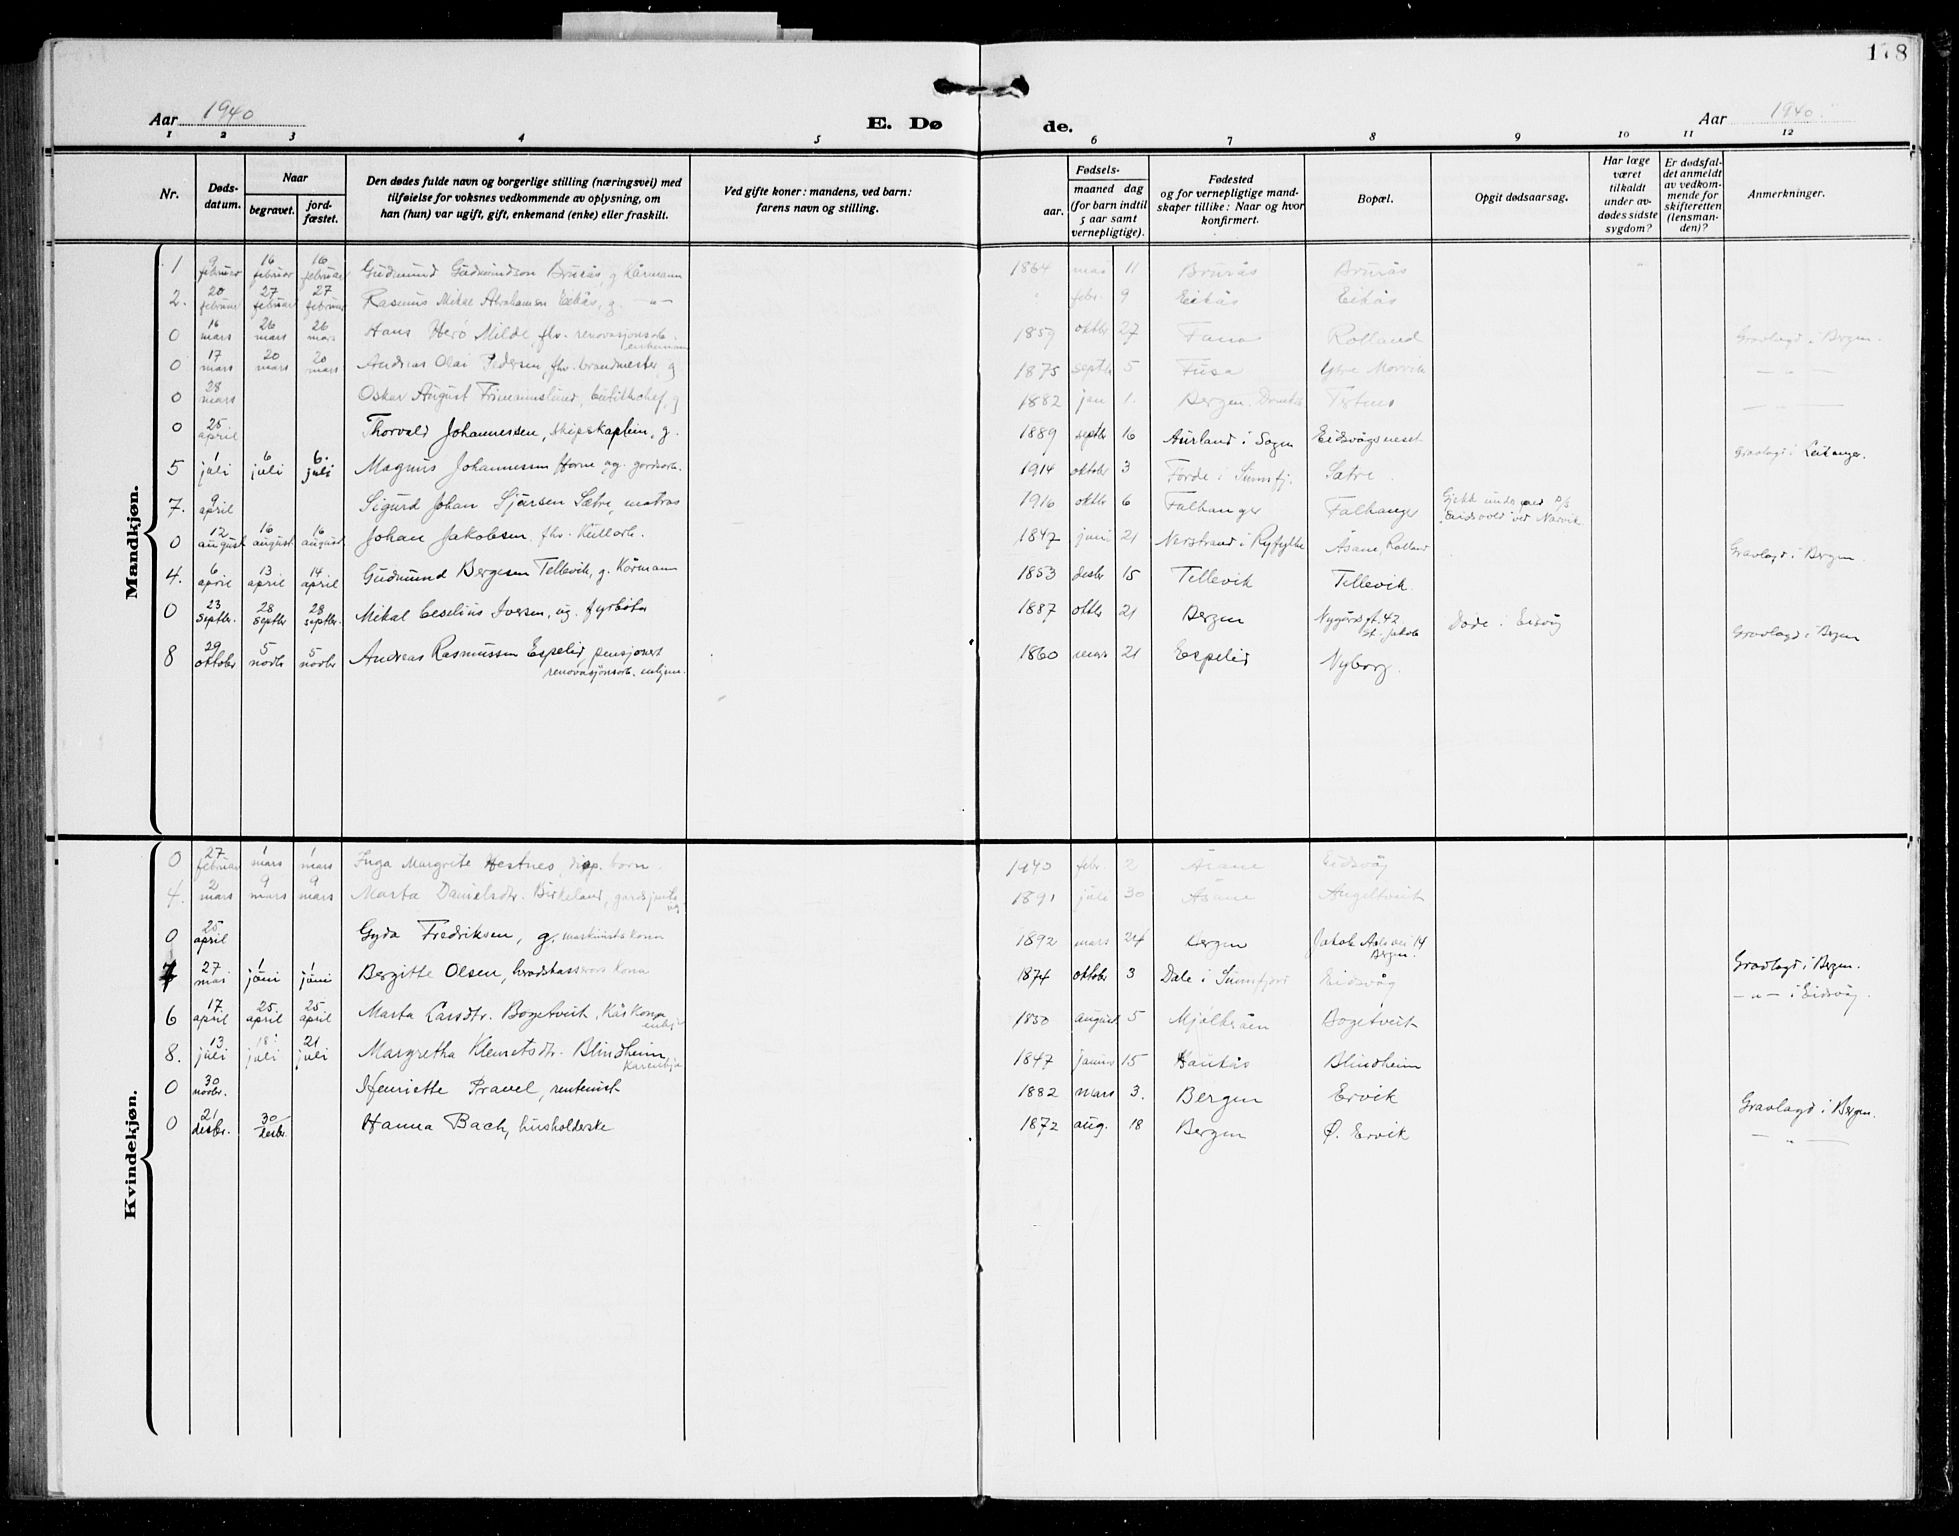 178
Aar 1940
E. Dø
de.
Aar 1940.
1 2 3 4 5 6 7 8 9 10 11 12
Nr.
Døds-
datum.
Naar
begravet.
jord-
fæstet.
Den dødes fulde navn og borgerlige stilling (næringsvei) med
tilføielse for voksnes vedkommende av oplysning, om
han (hun) var ugift, gift, enkemand (enke) eller fraskilt.
Ved gifte koner: mandens, ved barn:
farens navn og stilling.
Fødsels-
aar.
maaned dag
(for barn indtil
5 aar samt
vernepligtige).
Fødested
og for vernepligtige mand-
skaper tillike: Naar og hvor
konfirmert.
Bopæl.
Opgit dødsaarsag.
Har læge
været
tilkaldt
under av-
dødes sidste
sygdom?
Er dødsfal-
det anmeldt
av vedkom-
mende for
skifteretten
(lensman-
den)?
Anmerkninger.
Mandkjøn.
1 9 februar 16 februar 16 februar Gudmund Gudmundson Brurås, g. Kårmann 1864 mai 11 Brurås Brurås
2. 20 februar 27 februar 27 februar Rasmus Mikal Abrahamsen Eikås, g. -"- " febr. 9 Eikås Eikås
0 16 mars 26 mars 26 mars Hans Herø Milde, fhv. renovasjonsarb. enkemann 1859 oktbr 27 Fana Rolland Gravlagd i Bergen.
0 17 mars 20 mars 20 mars Andreas Olai Pedersen, fhv. brandmester, g 1875 septbr 5 Fusa Ytre Morvik - " -
0 28 mars Oskar August Frimannslund, g 1882 jan 1. Bergen, Tertnes - " -
0 25 april Thorvald Johannessen, skipskaptein, g. 1889 septbr 16 Aurland i Sogn Eidsvågsneset Gravlagd i Leikanger.
5 1 juli 6 juli 6. juli Magnus Johannessen Horne ug. gardsarb. 1914 oktober 3 Førde i Sunnfj. Sætre
7. 9 april Sigurd Johan Sjursen Sætre, matros 1916 oktbr 6 Falhanger Falhanger Gjekk under med P/S "Eidsvold" ved Narvik
0 12 august 16 august 16 august Johan Jakobsen, fhv. Kullarb. 1847 juni 21 Nerstrand i Ryfylke Åsane, Rolland Gravlagd i Bergen.
4. 6 april 13 april 14 april Gudmund Bergesen Tellevik, g. Kårmann 1853 desbr 15 Tellevik Tellevik
0 23 septbr. 28 septbr 28 septbr. Mikal Ceselius Iversen, ug. fyrbøter 1887 oktbr 21 Bergen Nygårdsgt. 42 St. Jakob Døde i Eidsvåg Gravlagd i Bergen
8 29 oktober 5 novbr 5 novbr Andreas Rasmussen Espelid, pensjonert renovasjonsarb. enkjem. 1860 mars 21 Espelid Nyborg.
Kvindekjøn.
0 27 februar 1 mars 1 mars Inga Margrete Hestnes, barn 1940 febr. 2 Åsane Eidsvåg
4. 2 mars 9 mars 9 mars Marta Danielsdtr. Birkeland, gardsjente ug 1891 juli 30 Åsane Angeltveit
0 25 april Gyda Fredriksen, g. maskinists kona 1892 mars 24 Bergen Jakob Aalsvei 14 Bergen.
7 27 mai 1 juni 1 juni Bergitte Olsen, kona 1874 oktober 3 Dale i Sunnfjord Eidsvåg Gravlagd i Bergen.
-"- i Eidsvåg
6 17 april 25 april 25 april Marta Larsdtr. Bogetveit, Kårkona enkje 1850 august 5 Mjølkeråen Bogetveit
8. 13 juli 18 juli 21 juli Margretha Klemetsdtr. Blindheim, Kårenkje 1847 januar 15 Haukås Blindheim
0 30 novbr. Henriette Pravel, rentenist 1882 mars 3. Bergen Ervik Gravlagd i Bergen.
0 21 desbr. 30 desbr. Hanna Bach, husholderske 1872 aug. 18 Bergen Ø. Ervik - " -